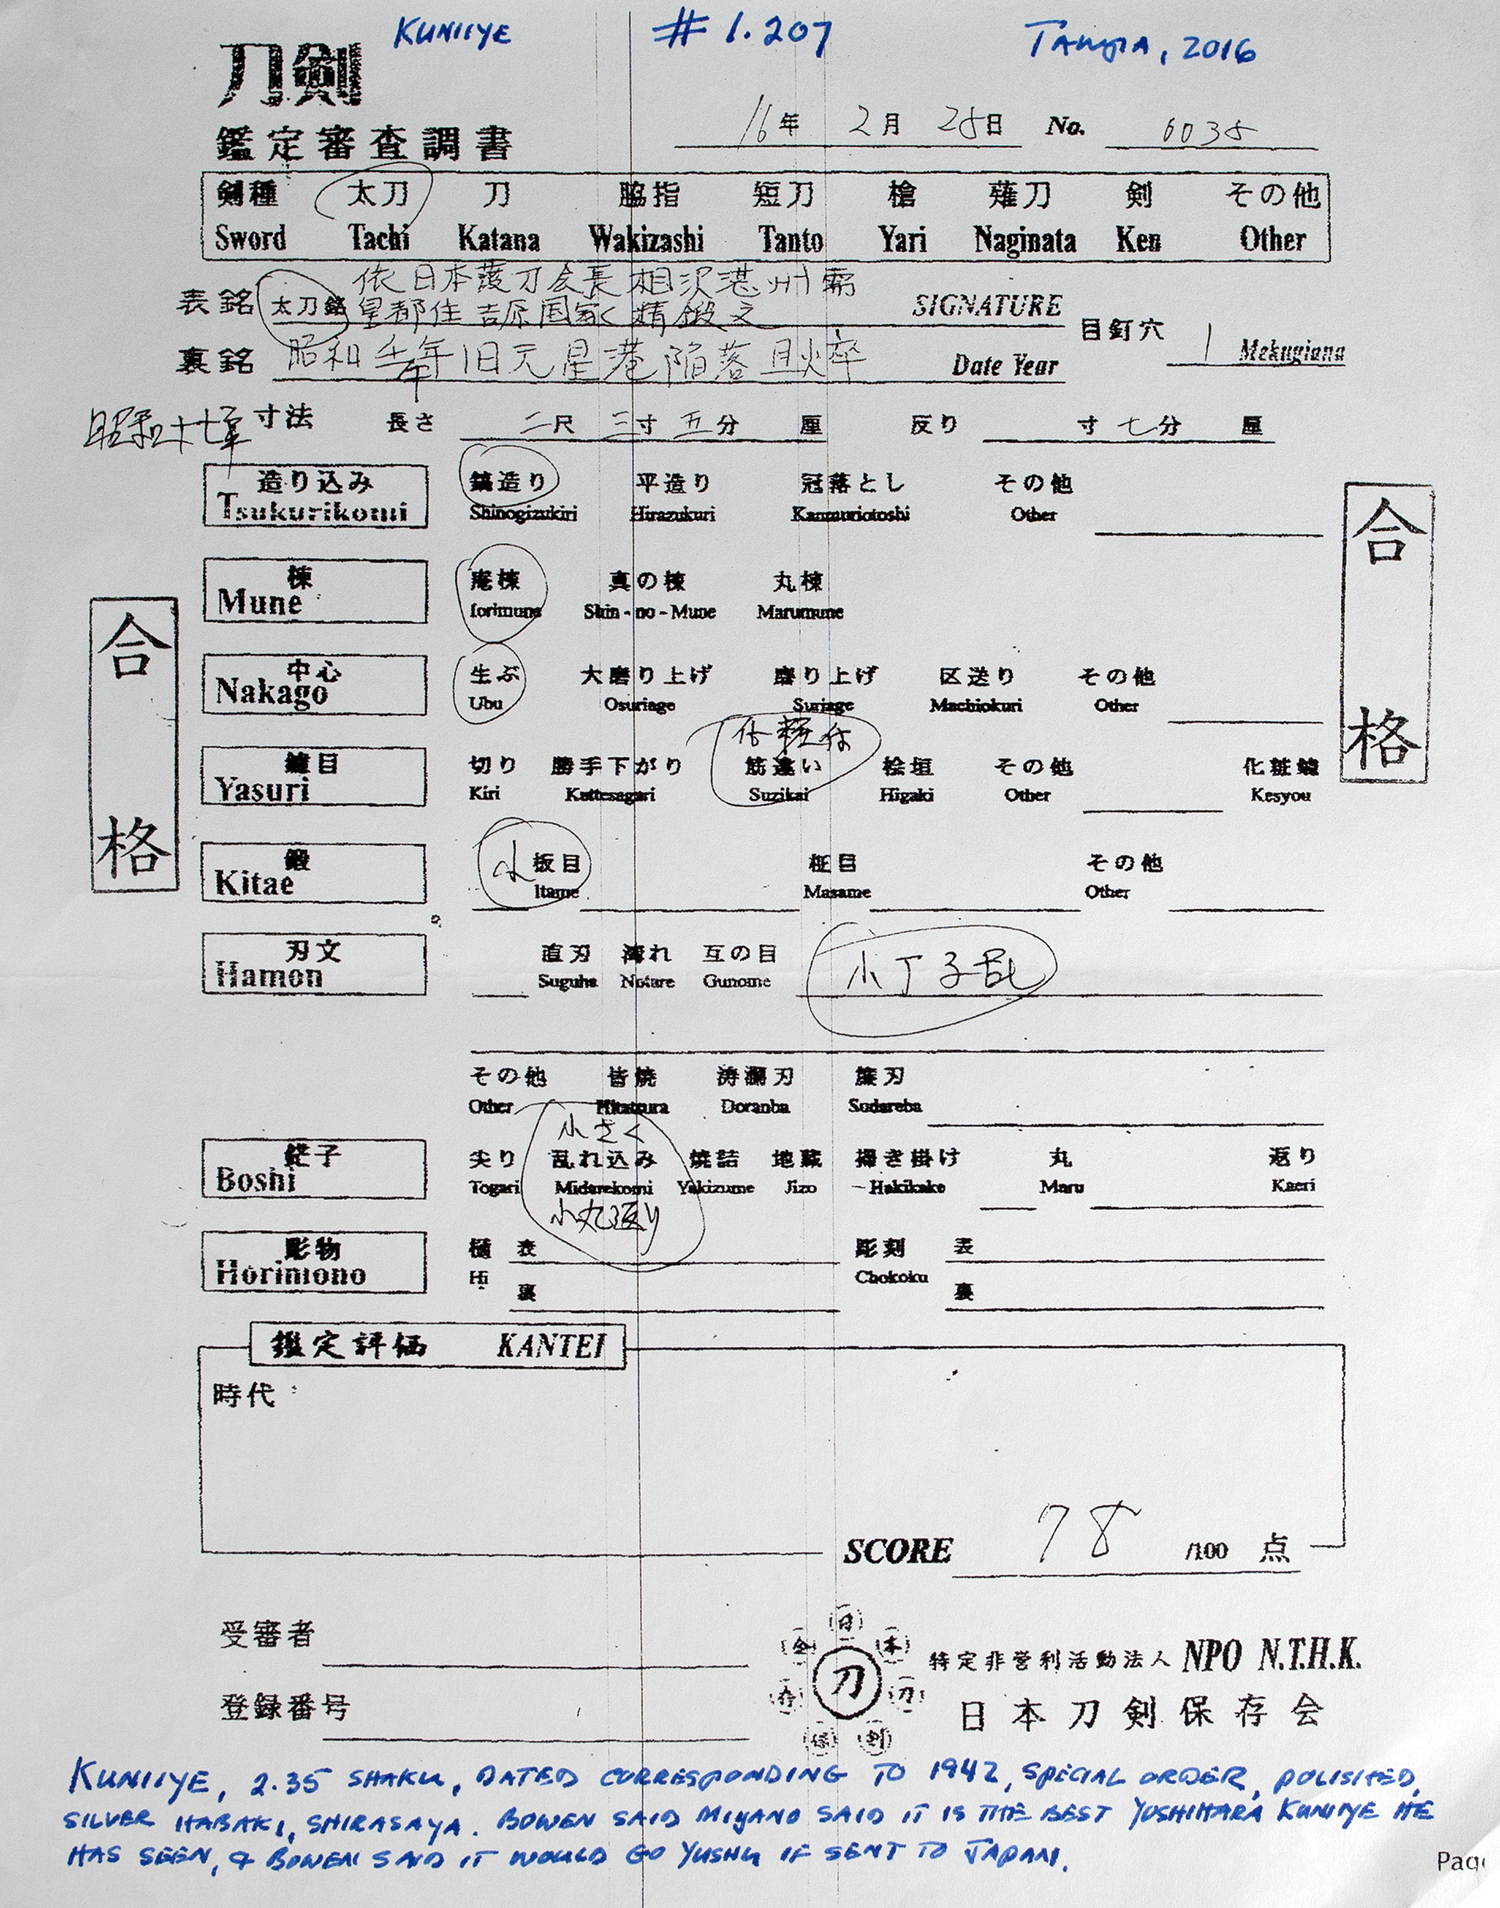 KUNIIYE #1.207 TAMPA, 2016
刀剣
鑑定審査調書
16年 2月 28日 No. 6035
剣種 太刀 刀 脇指 短刀 槍 薙刀 剣 その他
Sword Tachi Katana Wakizashi Tanto Yari Naginata Ken Other
依日本護刀会長相沢湛州需
表銘 太刀銘 皇都住吉原国家精鍛之 SIGNATURE
目釘穴 1 Mekugiana
裏銘 昭和壬午年旧元星港陥落 Date Year
昭和十七年
寸法 長さ 二尺 三寸 五分 厘 反り 寸 七分 厘
造り込み 鎬造り 平造り 冠落とし その他
Tsukurikomi Shinogizukiri Hirazukuri Kanmuriotoshi Other
棟 庵棟 真の棟 丸棟
Mune Iorimune Shin-no-Mune Marumune
中心 生ぶ 大磨り上げ 磨り上げ 区送り その他
Nakago Ubu Osuriage Suriage Machiokuri Other
化粧
鑢目 切り 勝手下がり 筋違い 桧垣 その他 化粧鑢
Yasuri Kiri Kattesagari Suzikai Higaki Other Kesyou
鍛 小 板目 柾目 その他
Kitae Itame Masame Other
刃文 直刃 湾れ 互の目 小丁子乱
Hamon Suguha Notare Gunome
その他 皆焼 涛瀾刃 簾刃
Other Hitatsura Doranba Sudareba
小さく
鋩子 尖り 乱れ込み 焼詰 地蔵 掃き掛け 丸 返り
Boshi Togari Midarekomi Yakizume Jizo Hakikake Maru Kaeri
小丸返り
彫物 樋 表 彫刻 表
Horimono Hi 裏 Chokoku 裏
鑑定評価 KANTEI
時代
SCORE 78 /100 点
受審者
登録番号
全日本刀剣保存
刀
特定非営利活動法人 NPO N.T.H.K.
日本刀剣保存会
KUNIIYE, 2.35 SHAKU, DATED CORRESPONDING TO 1942, SPECIAL ORDER, POLISHED,
SILVER HABAKI, SHIRASAYA. BOWEN SAID MIYANO SAID IT IS THE BEST YOSHIHARA KUNIIYE HE
HAS SEEN, & BOWEN SAID IT WOULD GO YUSHU IF SENT TO JAPAN.
合格
合格